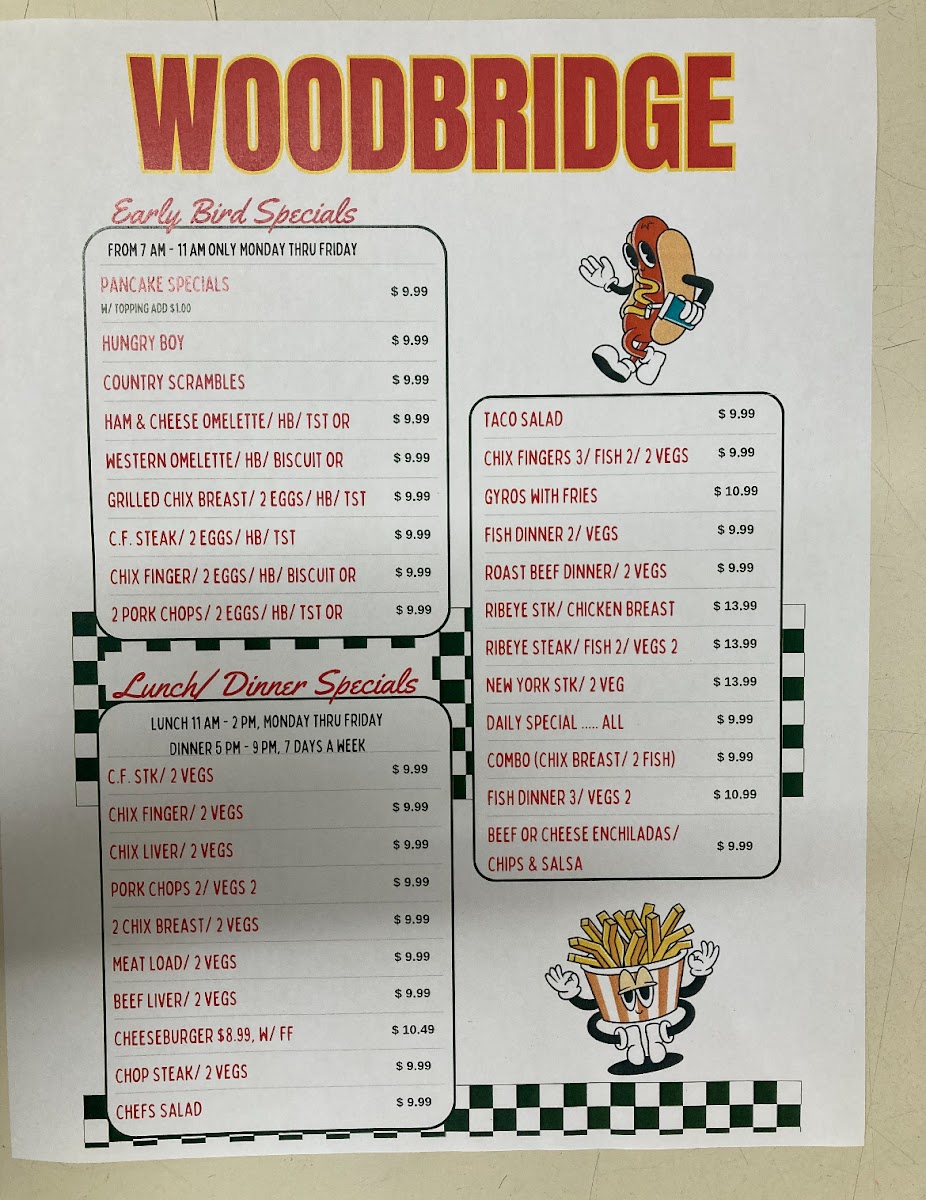 WOODBRIDGE
Early Bird Specials
FROM 7 AM - 11 AM ONLY MONDAY THRU FRIDAY
PANCAKE SPECIALS $ 9.99
W/ TOPPING ADD $1.00
HUNGRY BOY $ 9.99
COUNTRY SCRAMBLES $ 9.99
HAM & CHEESE OMELETTE/ HB/ TST OR $ 9.99
WESTERN OMELETTE/ HB/ BISCUIT OR $ 9.99
GRILLED CHIX BREAST/ 2 EGGS/ HB/ TST $ 9.99
C.F. STEAK/ 2 EGGS/ HB/ TST $ 9.99
CHIX FINGER/ 2 EGGS/ HB/ BISCUIT OR $ 9.99
2 PORK CHOPS/ 2 EGGS/ HB/ TST OR $ 9.99
Lunch/ Dinner Specials
LUNCH 11 AM - 2 PM, MONDAY THRU FRIDAY
DINNER 5 PM - 9 PM, 7 DAYS A WEEK
C.F. STK/ 2 VEGS $ 9.99
CHIX FINGER/ 2 VEGS $ 9.99
CHIX LIVER/ 2 VEGS $ 9.99
PORK CHOPS 2/ VEGS 2 $ 9.99
2 CHIX BREAST/ 2 VEGS $ 9.99
MEAT LOAD/ 2 VEGS $ 9.99
BEEF LIVER/ 2 VEGS $ 9.99
CHEESEBURGER $8.99, W/ FF $ 10.49
CHOP STEAK/ 2 VEGS $ 9.99
CHEFS SALAD $ 9.99
TACO SALAD $ 9.99
CHIX FINGERS 3/ FISH 2/ 2 VEGS $ 9.99
GYROS WITH FRIES $ 10.99
FISH DINNER 2/ VEGS $ 9.99
ROAST BEEF DINNER/ 2 VEGS $ 9.99
RIBEYE STK/ CHICKEN BREAST $ 13.99
RIBEYE STEAK/ FISH 2/ VEGS 2 $ 13.99
NEW YORK STK/ 2 VEG $ 13.99
DAILY SPECIAL ..... ALL $ 9.99
COMBO (CHIX BREAST/ 2 FISH) $ 9.99
FISH DINNER 3/ VEGS 2 $ 10.99
BEEF OR CHEESE ENCHILADAS/
CHIPS & SALSA $ 9.99